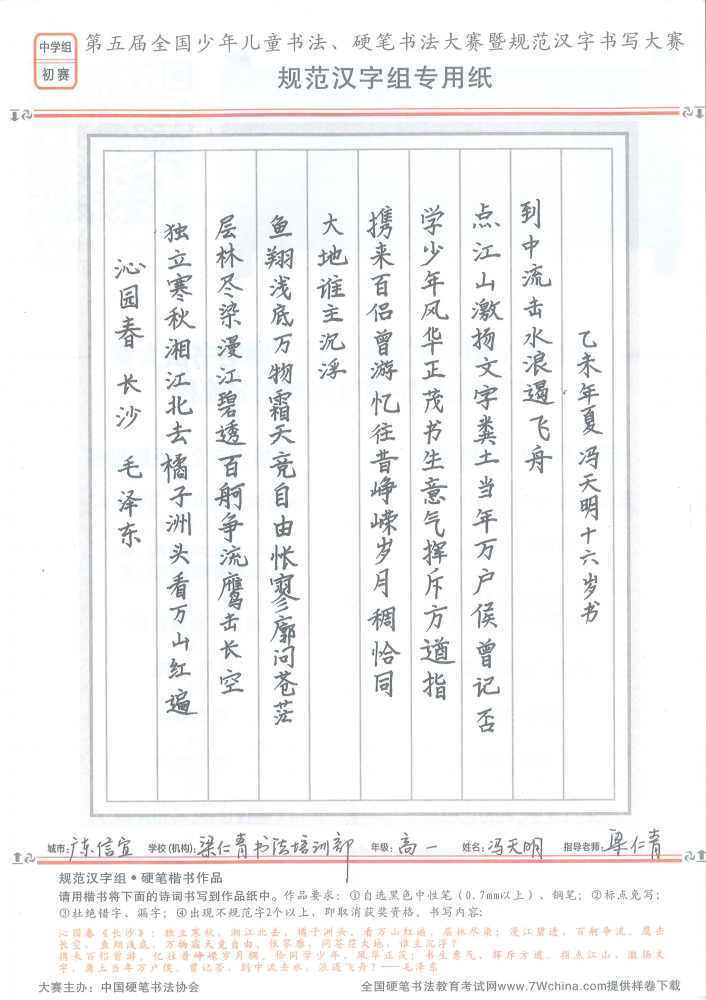 中学组
初赛
第五届全国少年儿童书法、硬笔书法大赛暨规范汉字书写大赛
规范汉字组专用纸
沁园春 长沙 毛泽东
独立寒秋湘江北去橘子洲头看万山红遍
层林尽染漫江碧透百舸争流鹰击长空
鱼翔浅底万物霜天竞自由怅寥廓问苍茫
大地谁主沉浮
携来百侣曾游忆往昔峥嵘岁月稠恰同
学少年风华正茂书生意气挥斥方遒指
点江山激扬文字粪土当年万户侯曾记否
到中流击水浪遏飞舟
乙未年夏 冯天明十六岁书
城市:广东信宜 学校(机构):梁仁青书法培训部 年级:高一 姓名:冯天明 指导老师:梁仁青
规范汉字组•硬笔楷书作品
请用楷书将下面的诗词书写到作品纸中。作品要求：①自选黑色中性笔（0.7mm以上）、钢笔；②标点免写；
③杜绝错字、漏字；④出现不规范字2个以上，即取消获奖资格。书写内容:
沁园春《长沙》：独立寒秋，湘江北去，橘子洲头。看万山红遍，层林尽染；漫江碧透，百舸争流。鹰击
长空，鱼翔浅底，万物霜天竞自由。怅寥廓，问苍茫大地，谁主沉浮？
携来百侣曾游，忆往昔峥嵘岁月稠。恰同学少年，风华正茂；书生意气，挥斥方遒。指点江山，激扬文
字，粪土当年万户侯。曾记否，到中流击水，浪遏飞舟？——毛泽东
大赛主办：中国硬笔书法协会 全国硬笔书法教育考试网www.7Wchina.com提供样卷下载